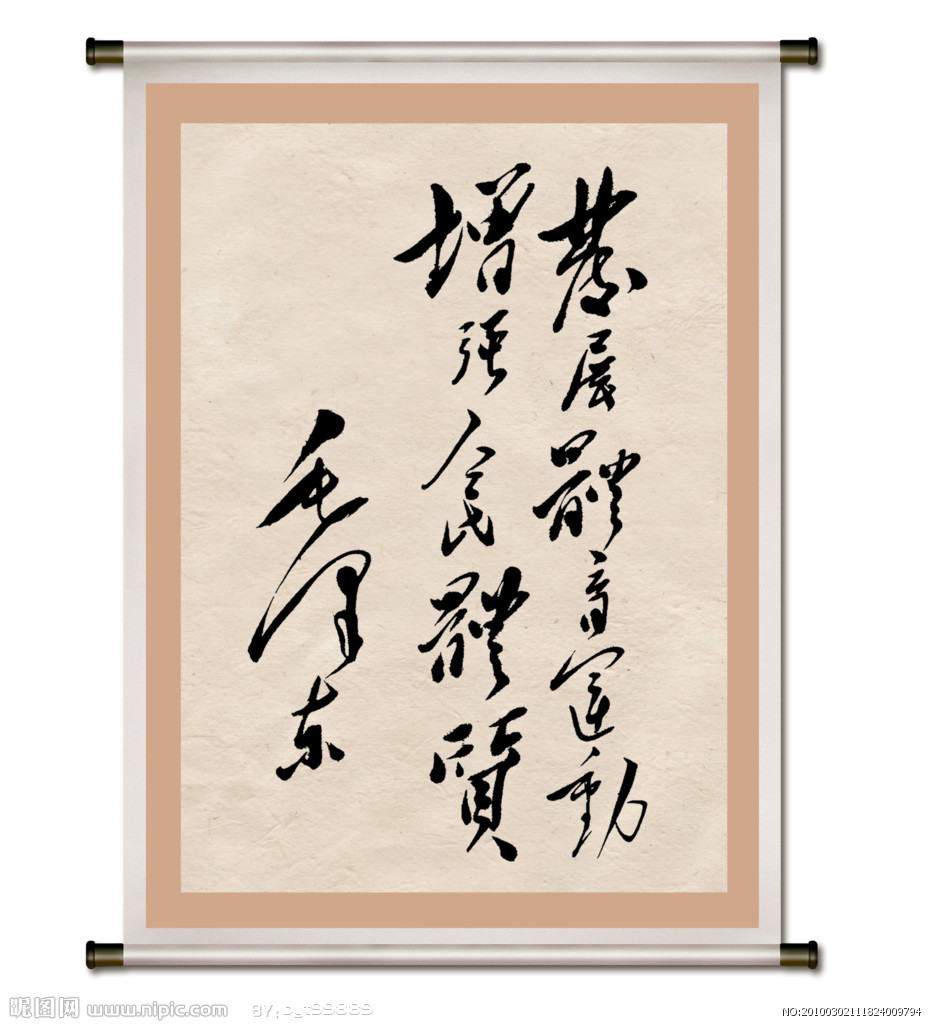 發展體育運動
增强人民體質
毛泽东
昵图网 www.nipic.com
NO:20100302111824009794